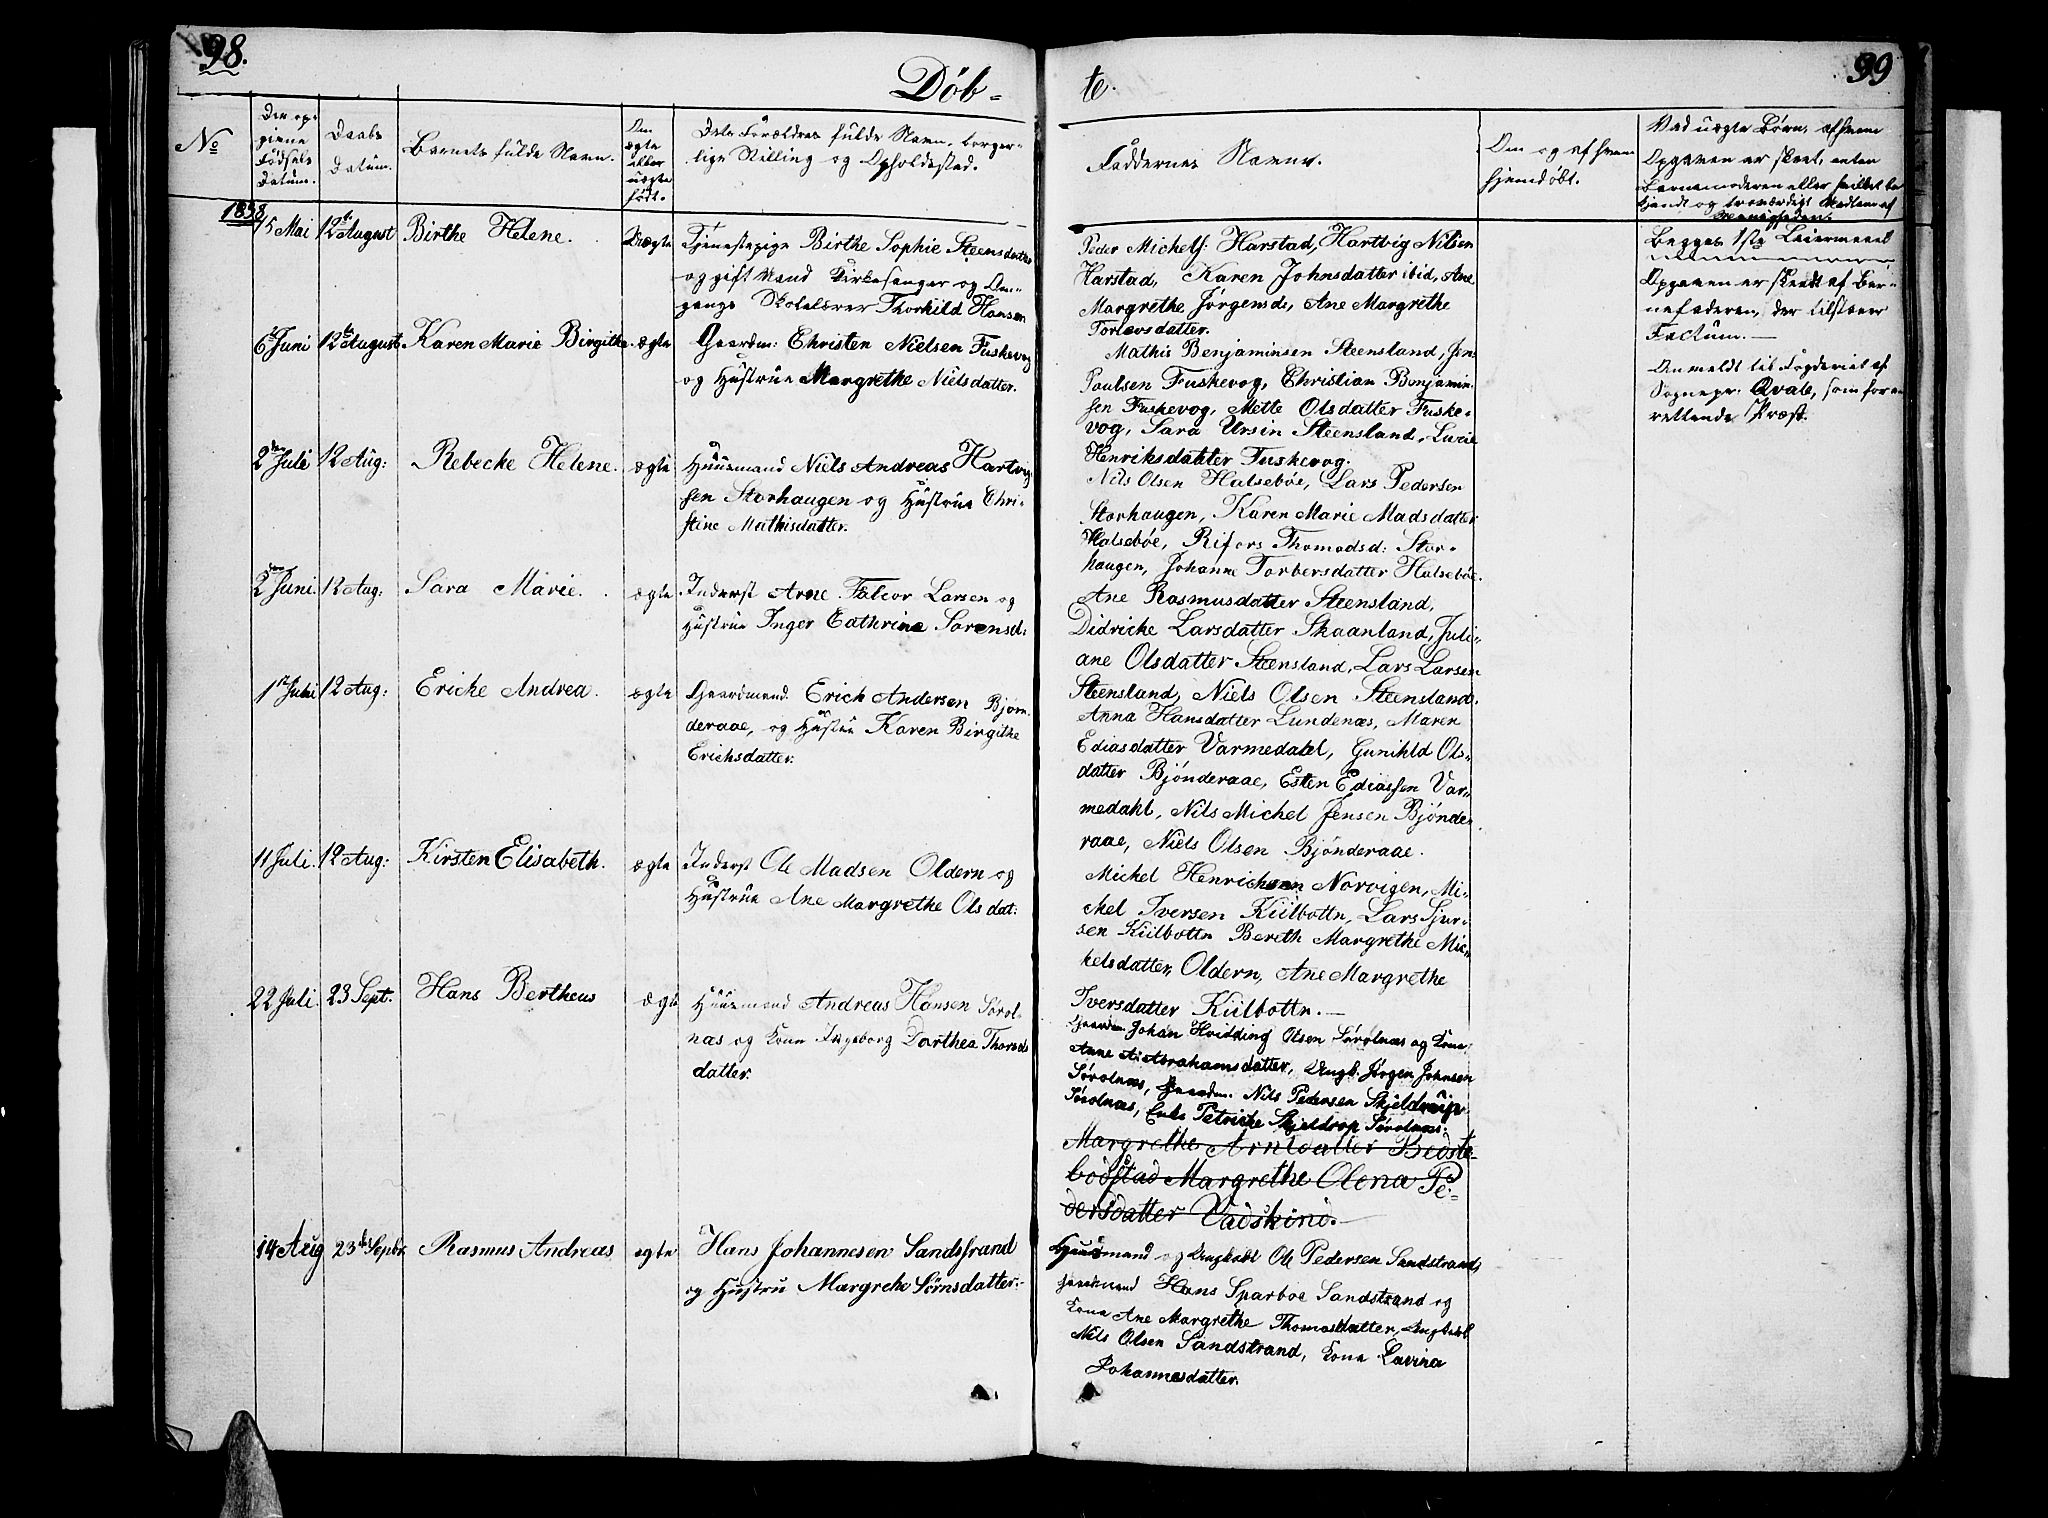 98.
99
Döb-
te.
No
Den op-
givne
Fødsels
Datum.
Daabs
Datum.
Barnets fulde Navn.
Om
ægte
eller
uægte
født.
Dets Forældres fulde Navn, borger-
lige Stilling og Opholdssted.
Faddernes Navne.
Om og af hvem
hjemdøbt.
Ved uægte Børn, af hvem
Opgaven er skeet, enten
Barnemoderen eller hvilket be
kjendt og troværdigt Medlem af
Menigheden.
1838
15 Mai
12te August
Birthe Helene.
Uægte
Tjenestepige Birthe Sophie Steensdatter
og gift Mand Kirkesanger og Om-
gangs Skolelærer Thorkild Hansen
Peder Michels: Harstad, Hartvig Nilsen
Harstad, Karen Johnsdatter ibid, Ane
Margrethe Jørgensd:, Ane Margrethe
Torlevsdatter.
Begges 1ste Leiermaal
Opgaven er skeedt af Bar-
nefaderen, der tilstaaer
Factum.
Anmeldt til Fogderiet af
Sognepr: Qvale, som for-
rettende Præst.
6te Juni
12te August
Karen Marie Birgithe.
ægte
Gaardm: Christen Nielsen Fuskevog
og Hustrue Margrethe Nielsdatter.
Mathis Benjaminsen Steensland, Jens
Paulsen Fuskevog, Christian Benjamin-
sen Fuskevog, Mette Olsdatter Fuske-
vog, Sara Ursin Steensland, Lucie
Henriksdatter Fuskevog.
2den Juli
12 Aug:
Rebecke Helene.
ægte
Huusmand Niels Andreas Hartvig
sen Storhaugen og Hustrue Chri-
stine Mathisdatter.
Nils Olsen Halsebøe, Lars Pedersen
Storhaugen, Karen Marie Madsdatter
Halsebøe, Rifors Thomadsd: Stor-
haugen, Johanne Torbersdatter Halsebøe.
2den Juni.
12 Aug:
Sara Marie.
ægte
Inderst Arne Falcor Larsen og
Hustrue Inger Cathrine Sørensd:
Ane Rasmusdatter Steensland,
Didricke Larsdatter Skaanland, Juli-
ane Olsdatter Steensland, Lars Larsen
Steensland, Niels Olsen Steensland.
1ste Juli
12 Aug:
Ericke Andrea.
ægte
Gaardmand Erich Andersen Bjøn-
deraae, og Hustrue Karen Birgithe
Erichsdatter.
Anna Hansdatter Lundenæs, Maren
Ediasdatter Varmedahl, Gunhild Ols-
datter Bjønderaae, Esten Ediassen Var-
medahl, Nils Michel Jensen Bjønde-
raae, Niels Olsen Bjønderaae.
11 Juli.
12 Aug:
Kirsten Elisabeth.
ægte
Inderst Ole Madsen Oldern og
Hustrue Ane Margrethe Olsdat:
Michel Henrichsen Norvigen, Mi-
chel Iversen Kiilbottn, Lars Sjur-
sen Kiilbottn Bereth Margrethe Mic-
kelsdatter, Oldern, Ane Margrethe
Iversdatter Kiilbottn.
22 Juli
23 Sept.
Hans Bertheus
ægte
Huusmand Andreas Hansen Sørol-
næs og Kone Ingeborg Dorthea Thorads
datter.
Gaardm. Johan Hvidding Olsen Sørolnæs og Kone
Anne A: Abrahamsdatter, Ungk. Jørgen Johnsen
Sørolnæs, Gaardm. Nils Pedersen Skjeldrup
Sørolnæs, Enke Petricke Skjeldrop Sørolnæs.
Margrethe Arntdatter Bedste-
bodstad Margrethe Olena Pe-
dersdatter Vadskind.
14 Aug
23de Septbr.
Rasmus Andreas
ægte
Hans Johannesen Sandstrand
og Hustru Margrehe Sørnsdatter.
Huusmand og Ungkarl Ole Pedersen Sandstrand,
Gaardmand Hans Sparboe Sandstrand og
Kone Ane Margrethe Thomasdatter, Ungkarl
Nils Olsen Sandstrand, Kone Lavina
Johannesdatter.